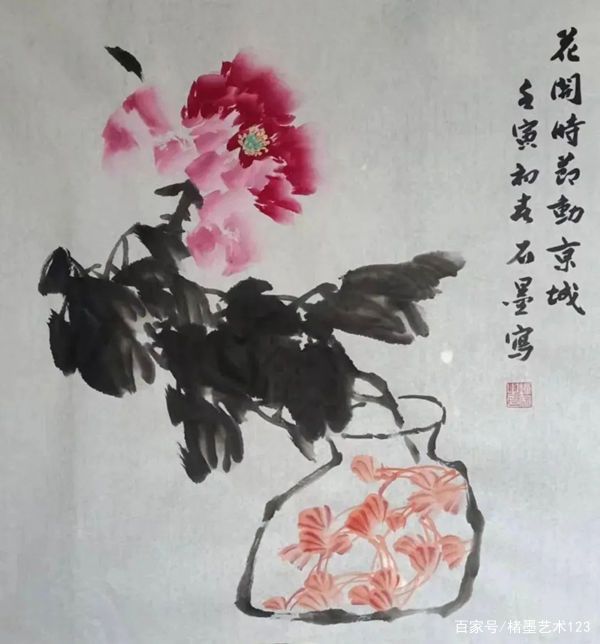 花開時節動京城
壬寅初春石墨寫
百家号/楮墨艺术123